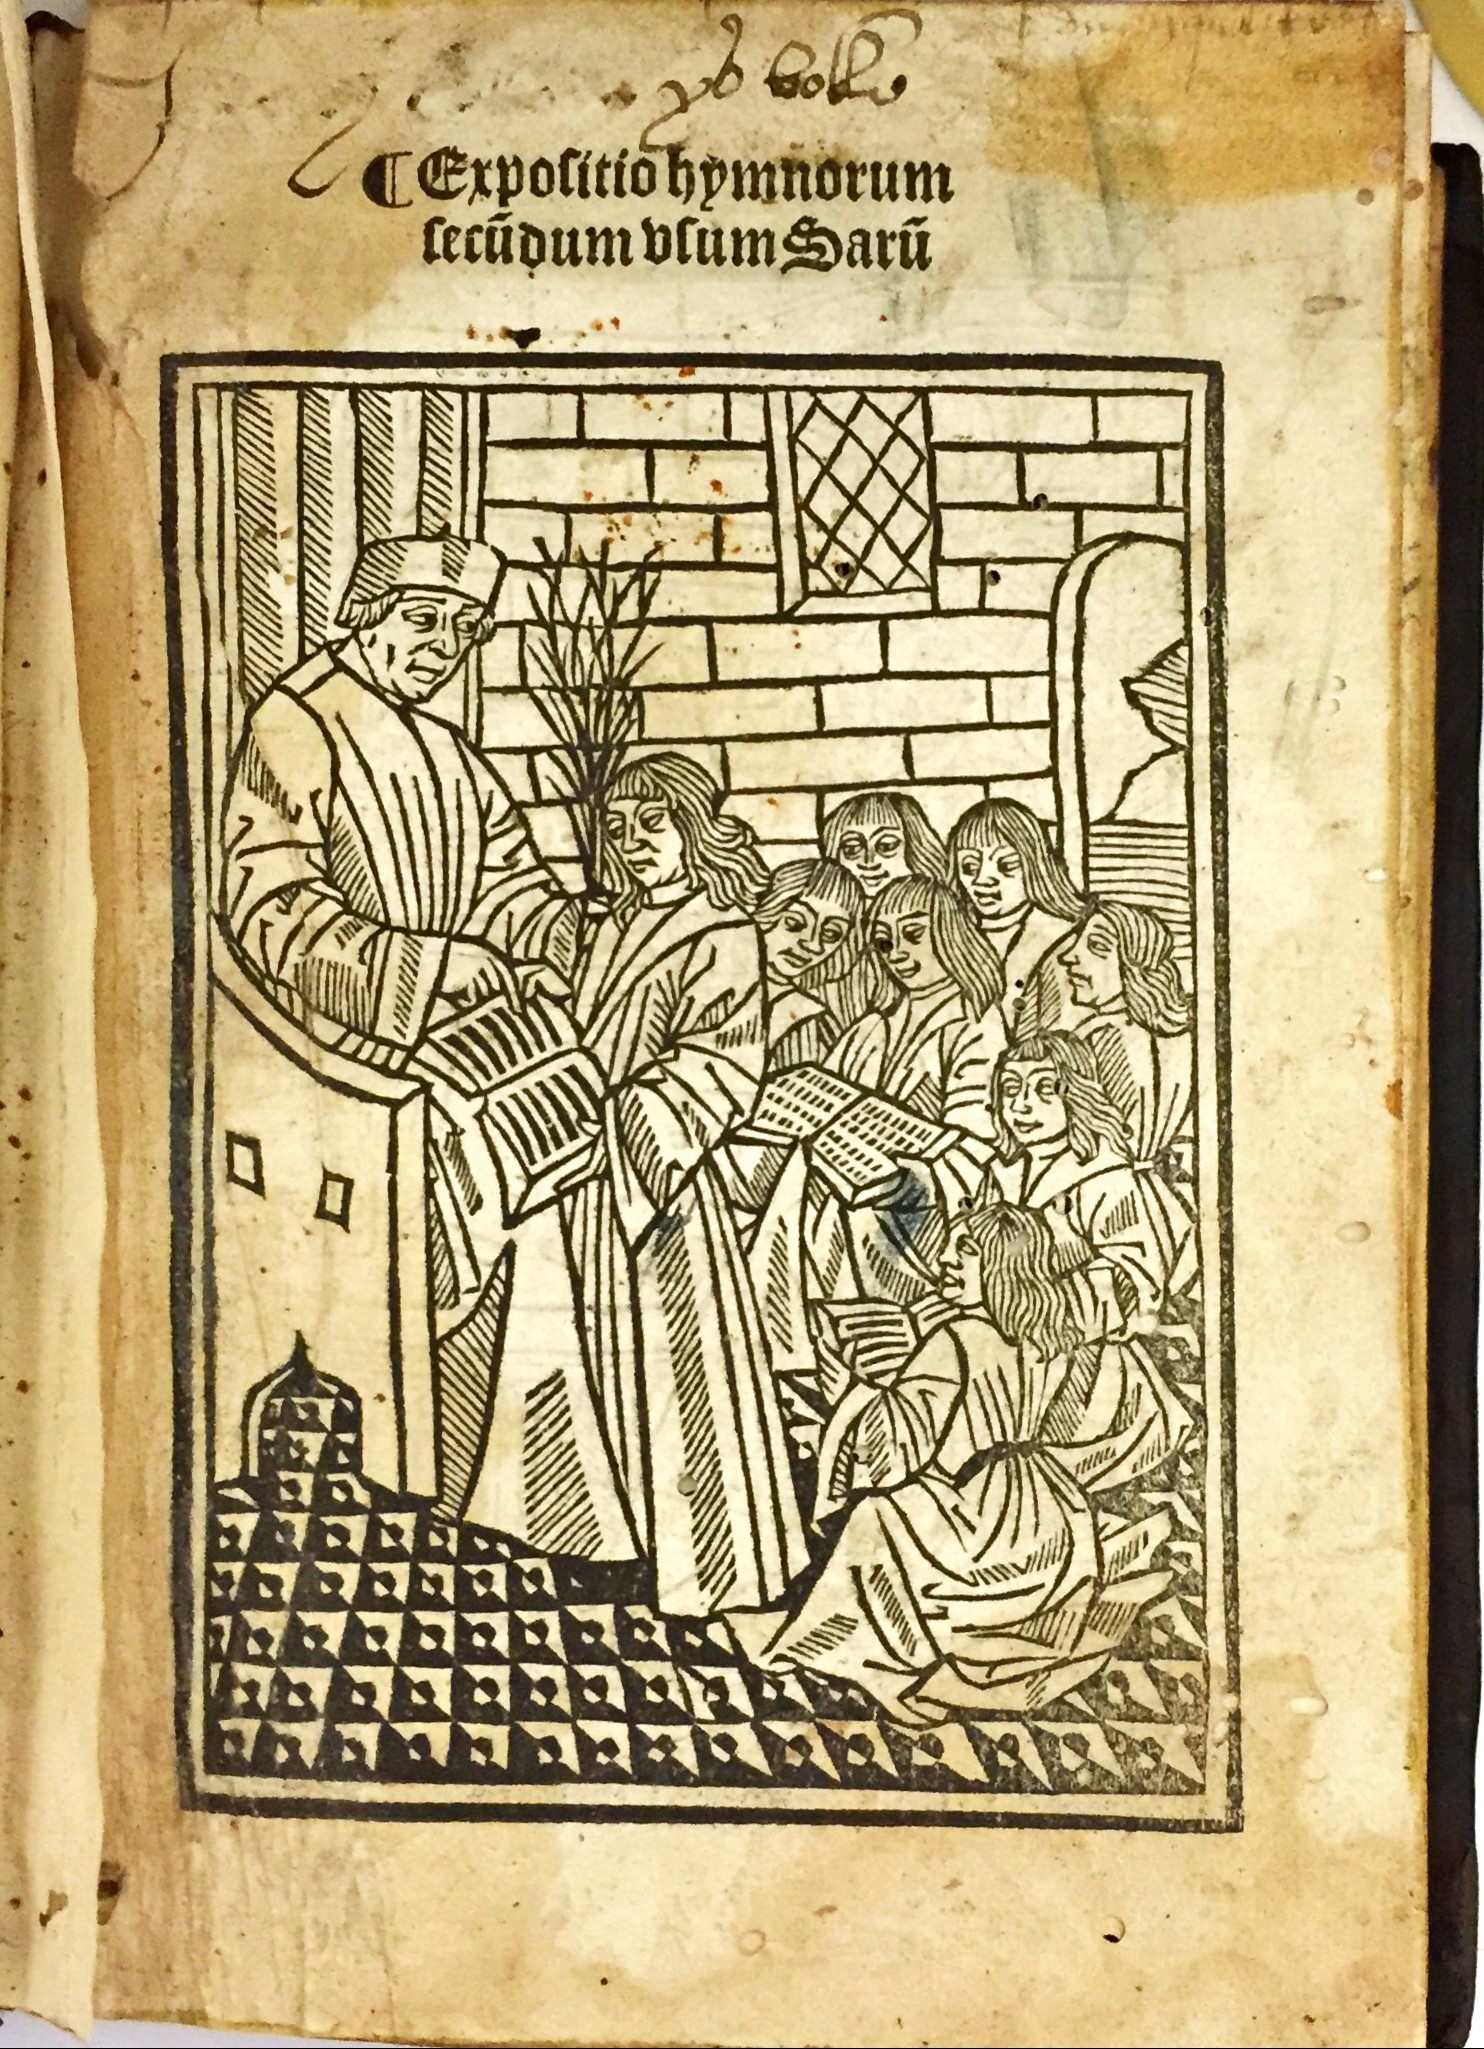 ¶Expoſitio hymnorum
ſecūdum vſum Sarū